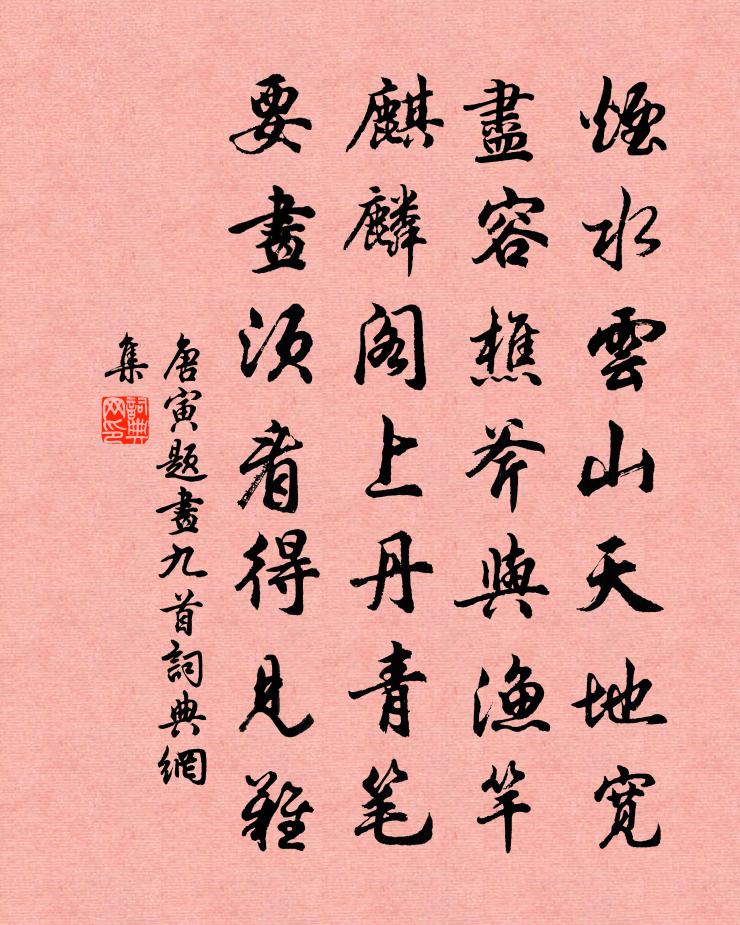 煙水雲山天地寬
盡容樵斧與漁竿
麒麟閣上丹青笔
要畫須看得見難
唐寅題畫九首詞典網
集
詞典
网印